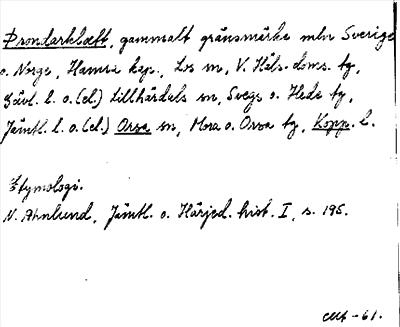 Þrondarkleft, gammalt gränsmärke mln Sverige
o. Norge, Hamra kap., Los sn, V. Häls. doms. tg,
Gävl. l. o. (el.) Lillhärdals sn, Svegs o. Hede tg,
Jämtl. l. o. (el.) Orsa sn, Mora o. Orsa tg, Kopp. l.
Etymologi.
N. Ahnlund, Jämtl. o. Härjed. hist. I, s. 195.
-61.